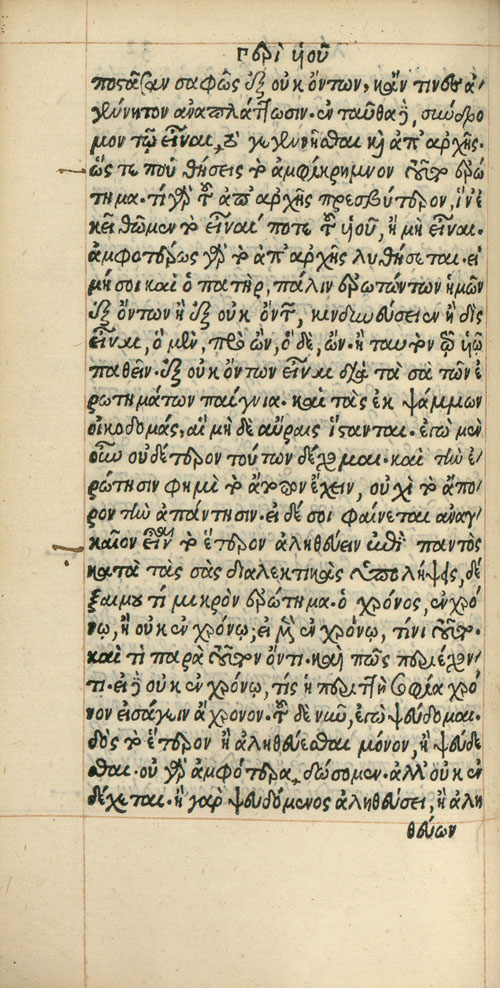 περὶ υἱοῦ
ποστᾶσαν σαφῶς ἐξ οὐκ ὄντων, κἄν τινες ἀ/
γέννητον ἀναπλάττωσιν. ἐνταῦθα δὲ, σύνδρο
μον τῷ εἶναι, τὸ γεγεννῆσθαι καὶ ἀπ' ἀρχῆς.
ὥς τε ποῦ θήσεις τὸ ἀμφίκρημνον τοῦτο ἐρώ
τημα. τί γὰρ τοῦ ἀπ' ἀρχῆς πρεσβύτερον, ἵν' ἐ
κεῖ θῶμεν τὸ εἶναί ποτε τοῦ υἱοῦ, ἢ μὴ εἶναι.
ἀμφοτέρως γὰρ τὸ ἀπ' ἀρχῆς λυθήσεται. εἰ
μή σοι καὶ ὁ πατὴρ, πάλιν ἐρωτώντων ἡμῶν
ἐξ ὄντων ἢ ἐξ οὐκ ὄντων, κινδυνεύσειεν ἢ δὶς
εἶναι, ὁ μὲν, προὼν, ὁ δὲ, ὤν. ἢ ταυτὸν τῷ υἱῷ
παθεῖν. ἐξ οὐκ ὄντων εἶναι διὰ τὰ σὰ τῶν ἐ
ρωτημάτων παίγνια. καὶ τὰς ἐκ ψάμμων
οἰκοδομάς, αἳ μὴ δὲ αὔραις ἵστανται. ἐγὼ μὲν
οὖν οὐδέτερον τούτων δέχομαι. καὶ τὴν ἐ/
ρώτησιν φημὶ τὸ ἄτοπον ἔχειν, οὐχὶ τὸ ἄπο/
ρον τὴν ἀπάντησιν. εἰ δέ σοι φαίνεται ἀναγ/
καῖον εἶναι τὸ ἕτερον ἀληθεύειν ἐπὶ παντὸς
κατὰ τὰς σὰς διαλεκτικὰς ὑπολήψεις, δέ
ξαι μου τί μικρὸν ἐρώτημα. ὁ χρόνος, ἐν χρό
νῳ, ἢ οὐκ ἐν χρόνῳ; εἰ μὲν ἐν χρόνῳ, τίνι τούτῳ.
καὶ τί παρὰ τοῦτον ὄντι. καὶ πῶς περιέχον/
τι. εἰ δὲ οὐκ ἐν χρόνῳ, τίς ἡ περιττὴ σοφία χρό
νον εἰσάγειν ἄχρονον. τοῦ δὲ νῦν, ἐγὼ ψεύδομαι.
δὸς τὸ ἕτερον ἢ ἀληθεύεσθαι μόνον, ἢ ψεύδε
σθαι. οὐ γὰρ ἀμφότερα, δώσομεν. ἀλλ' οὐκ ἐν
δέχεται. ἢ γὰρ ψευδόμενος ἀληθεύσει, ἢ ἀλη
θεύων